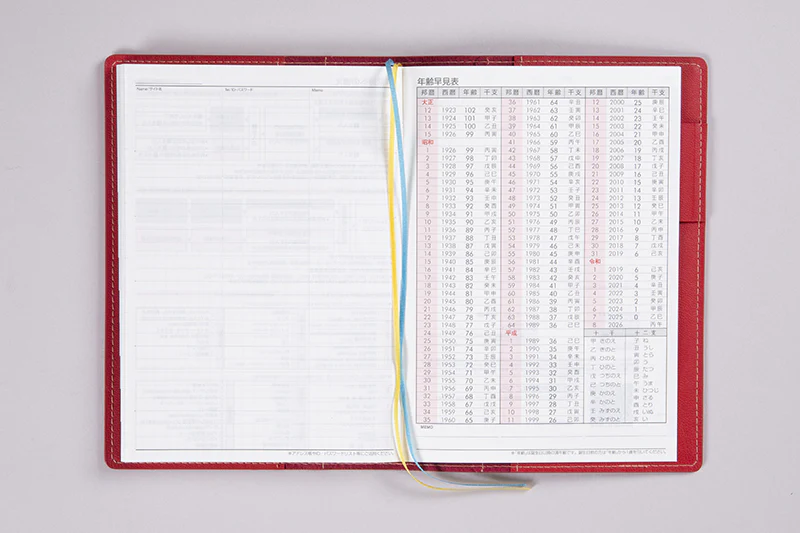 Name/サイト名 Tel/ID・パスワード Memo
年齢早見表
邦暦 西暦 年齢 干支
大正
12 1923 102 癸亥
13 1924 101 甲子
14 1925 100 乙丑
15 1926 99 丙寅
昭和
1 1926 99 丙寅
2 1927 98 丁卯
3 1928 97 戊辰
4 1929 96 己巳
5 1930 95 庚午
6 1931 94 辛未
7 1932 93 壬申
8 1933 92 癸酉
9 1934 91 甲戌
10 1935 90 乙亥
11 1936 89 丙子
12 1937 88 丁丑
13 1938 87 戊寅
14 1939 86 己卯
15 1940 85 庚辰
16 1941 84 辛巳
17 1942 83 壬午
18 1943 82 癸未
19 1944 81 甲申
20 1945 80 乙酉
21 1946 79 丙戌
22 1947 78 丁亥
23 1948 77 戊子
24 1949 76 己丑
25 1950 75 庚寅
26 1951 74 辛卯
27 1952 73 壬辰
28 1953 72 癸巳
29 1954 71 甲午
30 1955 70 乙未
31 1956 69 丙申
32 1957 68 丁酉
33 1958 67 戊戌
34 1959 66 己亥
35 1960 65 庚子
邦暦 西暦 年齢 干支
36 1961 64 辛丑
37 1962 63 壬寅
38 1963 62 癸卯
39 1964 61 甲辰
40 1965 60 乙巳
41 1966 59 丙午
42 1967 58 丁未
43 1968 57 戊申
44 1969 56 己酉
45 1970 55 庚戌
46 1971 54 辛亥
47 1972 53 壬子
48 1973 52 癸丑
49 1974 51 甲寅
50 1975 50 乙卯
51 1976 49 丙辰
52 1977 48 丁巳
53 1978 47 戊午
54 1979 46 己未
55 1980 45 庚申
56 1981 44 辛酉
57 1982 43 壬戌
58 1983 42 癸亥
59 1984 41 甲子
60 1985 40 乙丑
61 1986 39 丙寅
62 1987 38 丁卯
63 1988 37 戊辰
64 1989 36 己巳
平成
1 1989 36 己巳
2 1990 35 庚午
3 1991 34 辛未
4 1992 33 壬申
5 1993 32 癸酉
6 1994 31 甲戌
7 1995 30 乙亥
8 1996 29 丙子
9 1997 28 丁丑
10 1998 27 戊寅
11 1999 26 己卯
邦暦 西暦 年齢 干支
12 2000 25 庚辰
13 2001 24 辛巳
14 2002 23 壬午
15 2003 22 癸未
16 2004 21 甲申
17 2005 20 乙酉
18 2006 19 丙戌
19 2007 18 丁亥
20 2008 17 戊子
21 2009 16 己丑
22 2010 15 庚寅
23 2011 14 辛卯
24 2012 13 壬辰
25 2013 12 癸巳
26 2014 11 甲午
27 2015 10 乙未
28 2016 9 丙申
29 2017 8 丁酉
30 2018 7 戊戌
31 2019 6 己亥
令和
1 2019 6 己亥
2 2020 5 庚子
3 2021 4 辛丑
4 2022 3 壬寅
5 2023 2 癸卯
6 2024 1 甲辰
7 2025 0 乙巳
8 2026 丙午
十干 十二支
甲 きのえ 子 ね
乙 きのと 丑 うし
丙 ひのえ 寅 とら
丁 ひのと 卯 う
戊 つちのえ 辰 たつ
己 つちのと 巳 み
庚 かのえ 午 うま
辛 かのと 未 ひつじ
壬 みずのえ 申 さる
癸 みずのと 酉 とり
戌 いぬ
亥 い
MEMO
※アドレス帳やID、パスワードリスト等にご活用ください。